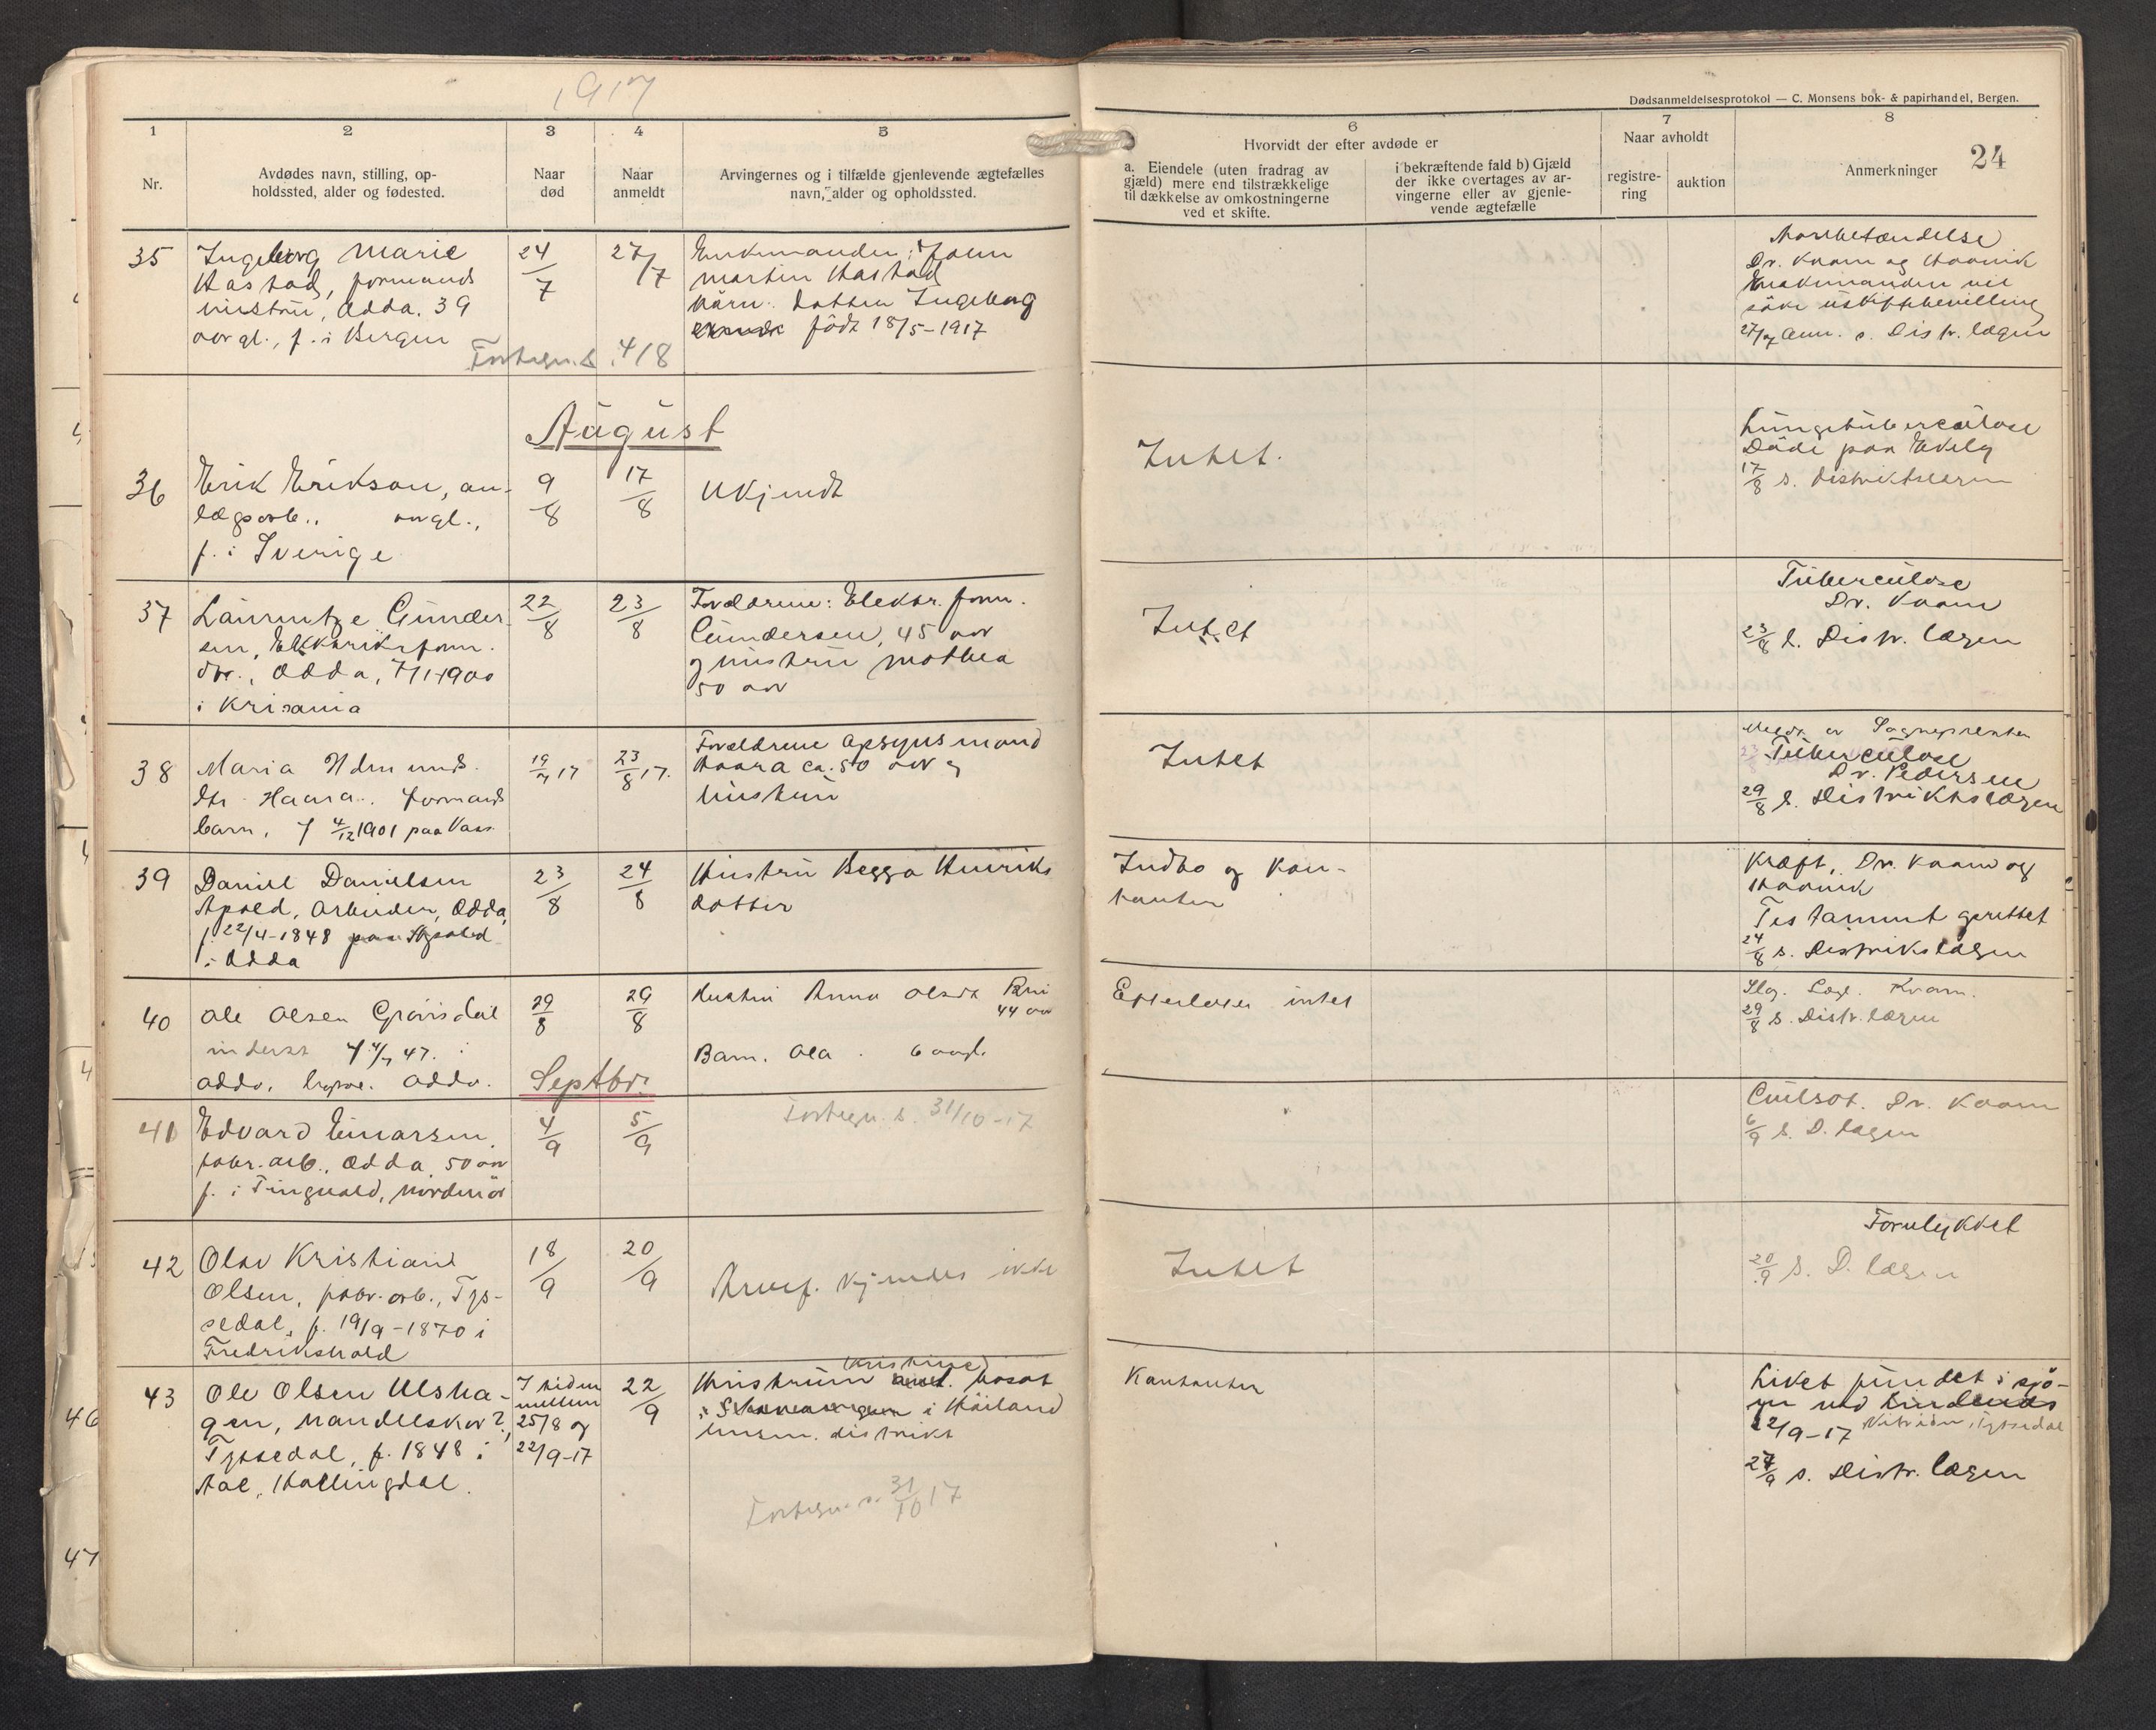 1917
Dødsanmeldelsesprotokol — C. Monsens bok- & papirhandel, Bergen.
24
1
2
3
4
5
6
7
8
Nr.
Avdødes navn, stilling, op-
holdssted, alder og fødested.
Naar
død
Naar
anmeldt
Arvingernes og i tilfælde gjenlevende ægtefælles
navn, alder og opholdssted.
Hvorvidt der efter avdøde er
a. Eiendele (uten fradrag av
gjæld) mere end tilstrækkelige
til dækkelse av omkostningerne
ved et skifte.
i bekræftende fald b) Gjæld
der ikke overtages av ar-
vingerne eller av gjenle-
vende ægtefælle
Naar avholdt
registre-
ring
auktion
Anmerkninger
35
Ingeborg Marie
Hastad, formands
hustru, Odda. 39
aar gl., f. i Bergen
24/7
27/7
Enkemanden: John
Martin Hastad
Børn: Datter Ingeborg
født 18/5-1917
Fortegn. s. 4/8
Dr. Kaam og Haanik
Enkemanden vil
søke uskiftebevilling
27/7 Anm. s. Distr. lægen
August
36
Erik Erikson, an-
lægsarb., aar gl.,
f. i Sverige
9/8
17/8
Ukjendt
Intet.
Lungetuberculose
Døde paa Ekely
17/8 s. Distriktslægen
37
Laurentze Gunder-
sen, Elektrikerform.
dtr., Odda, 7/1-1900
i Kristiania
22/8
23/8
Forældrene: Elektr. form.
Gundersen, 45 aar
og hustru Mathea
50 aar
Intet
Tuberculose
Dr. Kaam
23/8 s. Distr. lægen
38
Maria Hdmunds.
dtr. Haara. Formands
barn, f 4/12 1901 paa Vass
19/7 17
23/8 17.
Forældrene Opsynsmand
Haara ca. 50 aar og
hustru
Intet
Meldt av Sognepresten
Tuberculose
Dr. Pedersen
29/8 s. Distriktslægen
39
Daniel Danielsen
Apold, Arbeider, Odda,
f. 22/4-1848 paa Apold
i Odda
23/8
24/8
Hustru Begga Henriks
datter
Indbo og Kon-
tanter
Kræft, Dr. Kaam og
Haanik
Testament oprettet
24/8 s. Distriktslægen
40
Ole Olsen Grønsdal
inderst f 4/7 47. i
Odda. bopæl. Odda.
29/8
29/8
Hustru Anna Olsdt
44 aar
Barn. Ola. 6 aargl.
Efterlater intet
Slag. Læge. Kvam.
29/8 s. Distr. lægen
Septbr.
41
Edvard Einarsen,
fabr. arb., Odda, 50 aar
f. i Tingvold, Nordmør
4/9
5/9
Fortegn. s. 31/10-17
Gulsot. Dr. Kaam
6/9 s. D. lægen
42
Olav Kristian
Olsen, fabr. arb., Tys-
sedal, f. 19/9-1870 i
Fredrikshald
18/9
20/9
Arving. kjendes ikke
Intet
Forulykket
20/9 s. D. lægen
43
Ole Olsen Ulsha-
gen, Handelskar?,
Tyssedal, f. 1848 i
Aal, Hallingdal.
I tiden
mellem
25/8 og
22/9-17
22/9
Hustruen (Kristine) bosat
i Høiland
lensm. distrikt
Fortegn. s. 31/10 17
Kontanter
Liket fundet i sjø-
en ved
22/9-17 Tyssedal
24/9 s. Distr. lægen
46
47